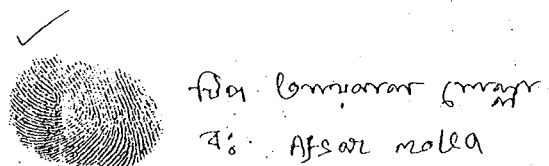 টিপ মোল্লা
বঃ Afsar molla